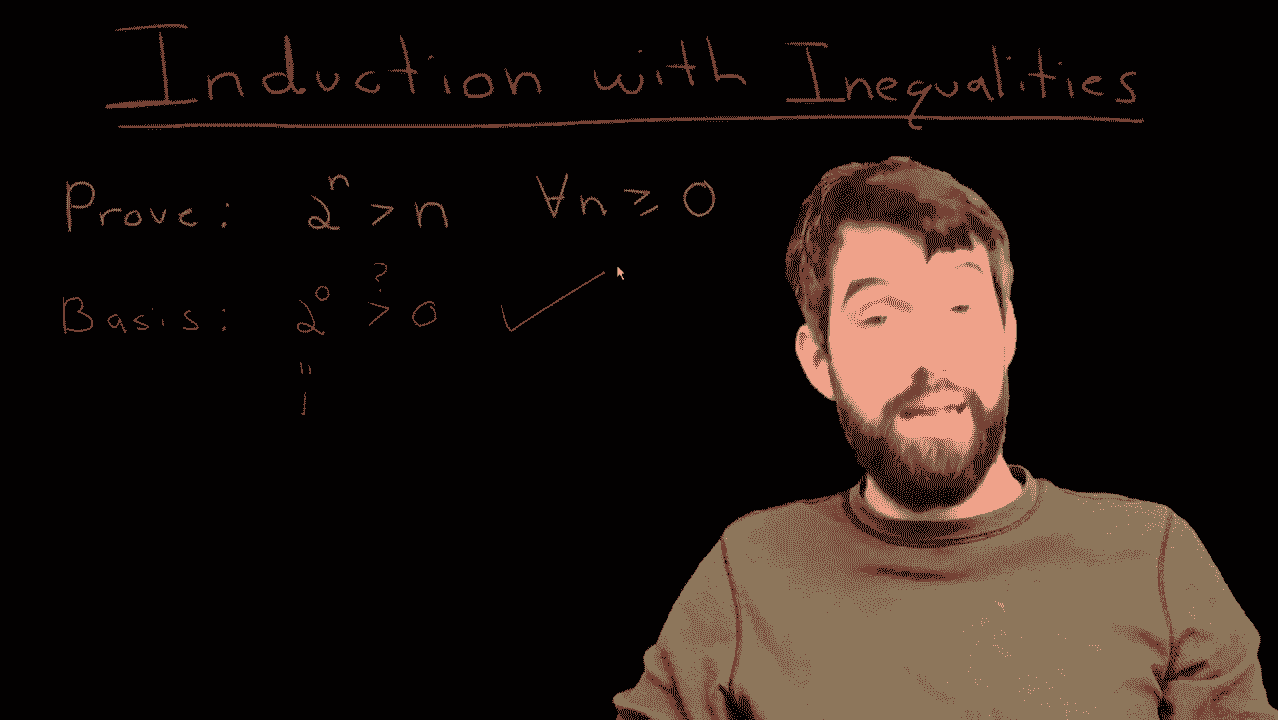 Induction with Inequalities
Prove: 2ⁿ > n ∀n ≥ 0
?
Basis: 2⁰ > 0 ✓
"
1